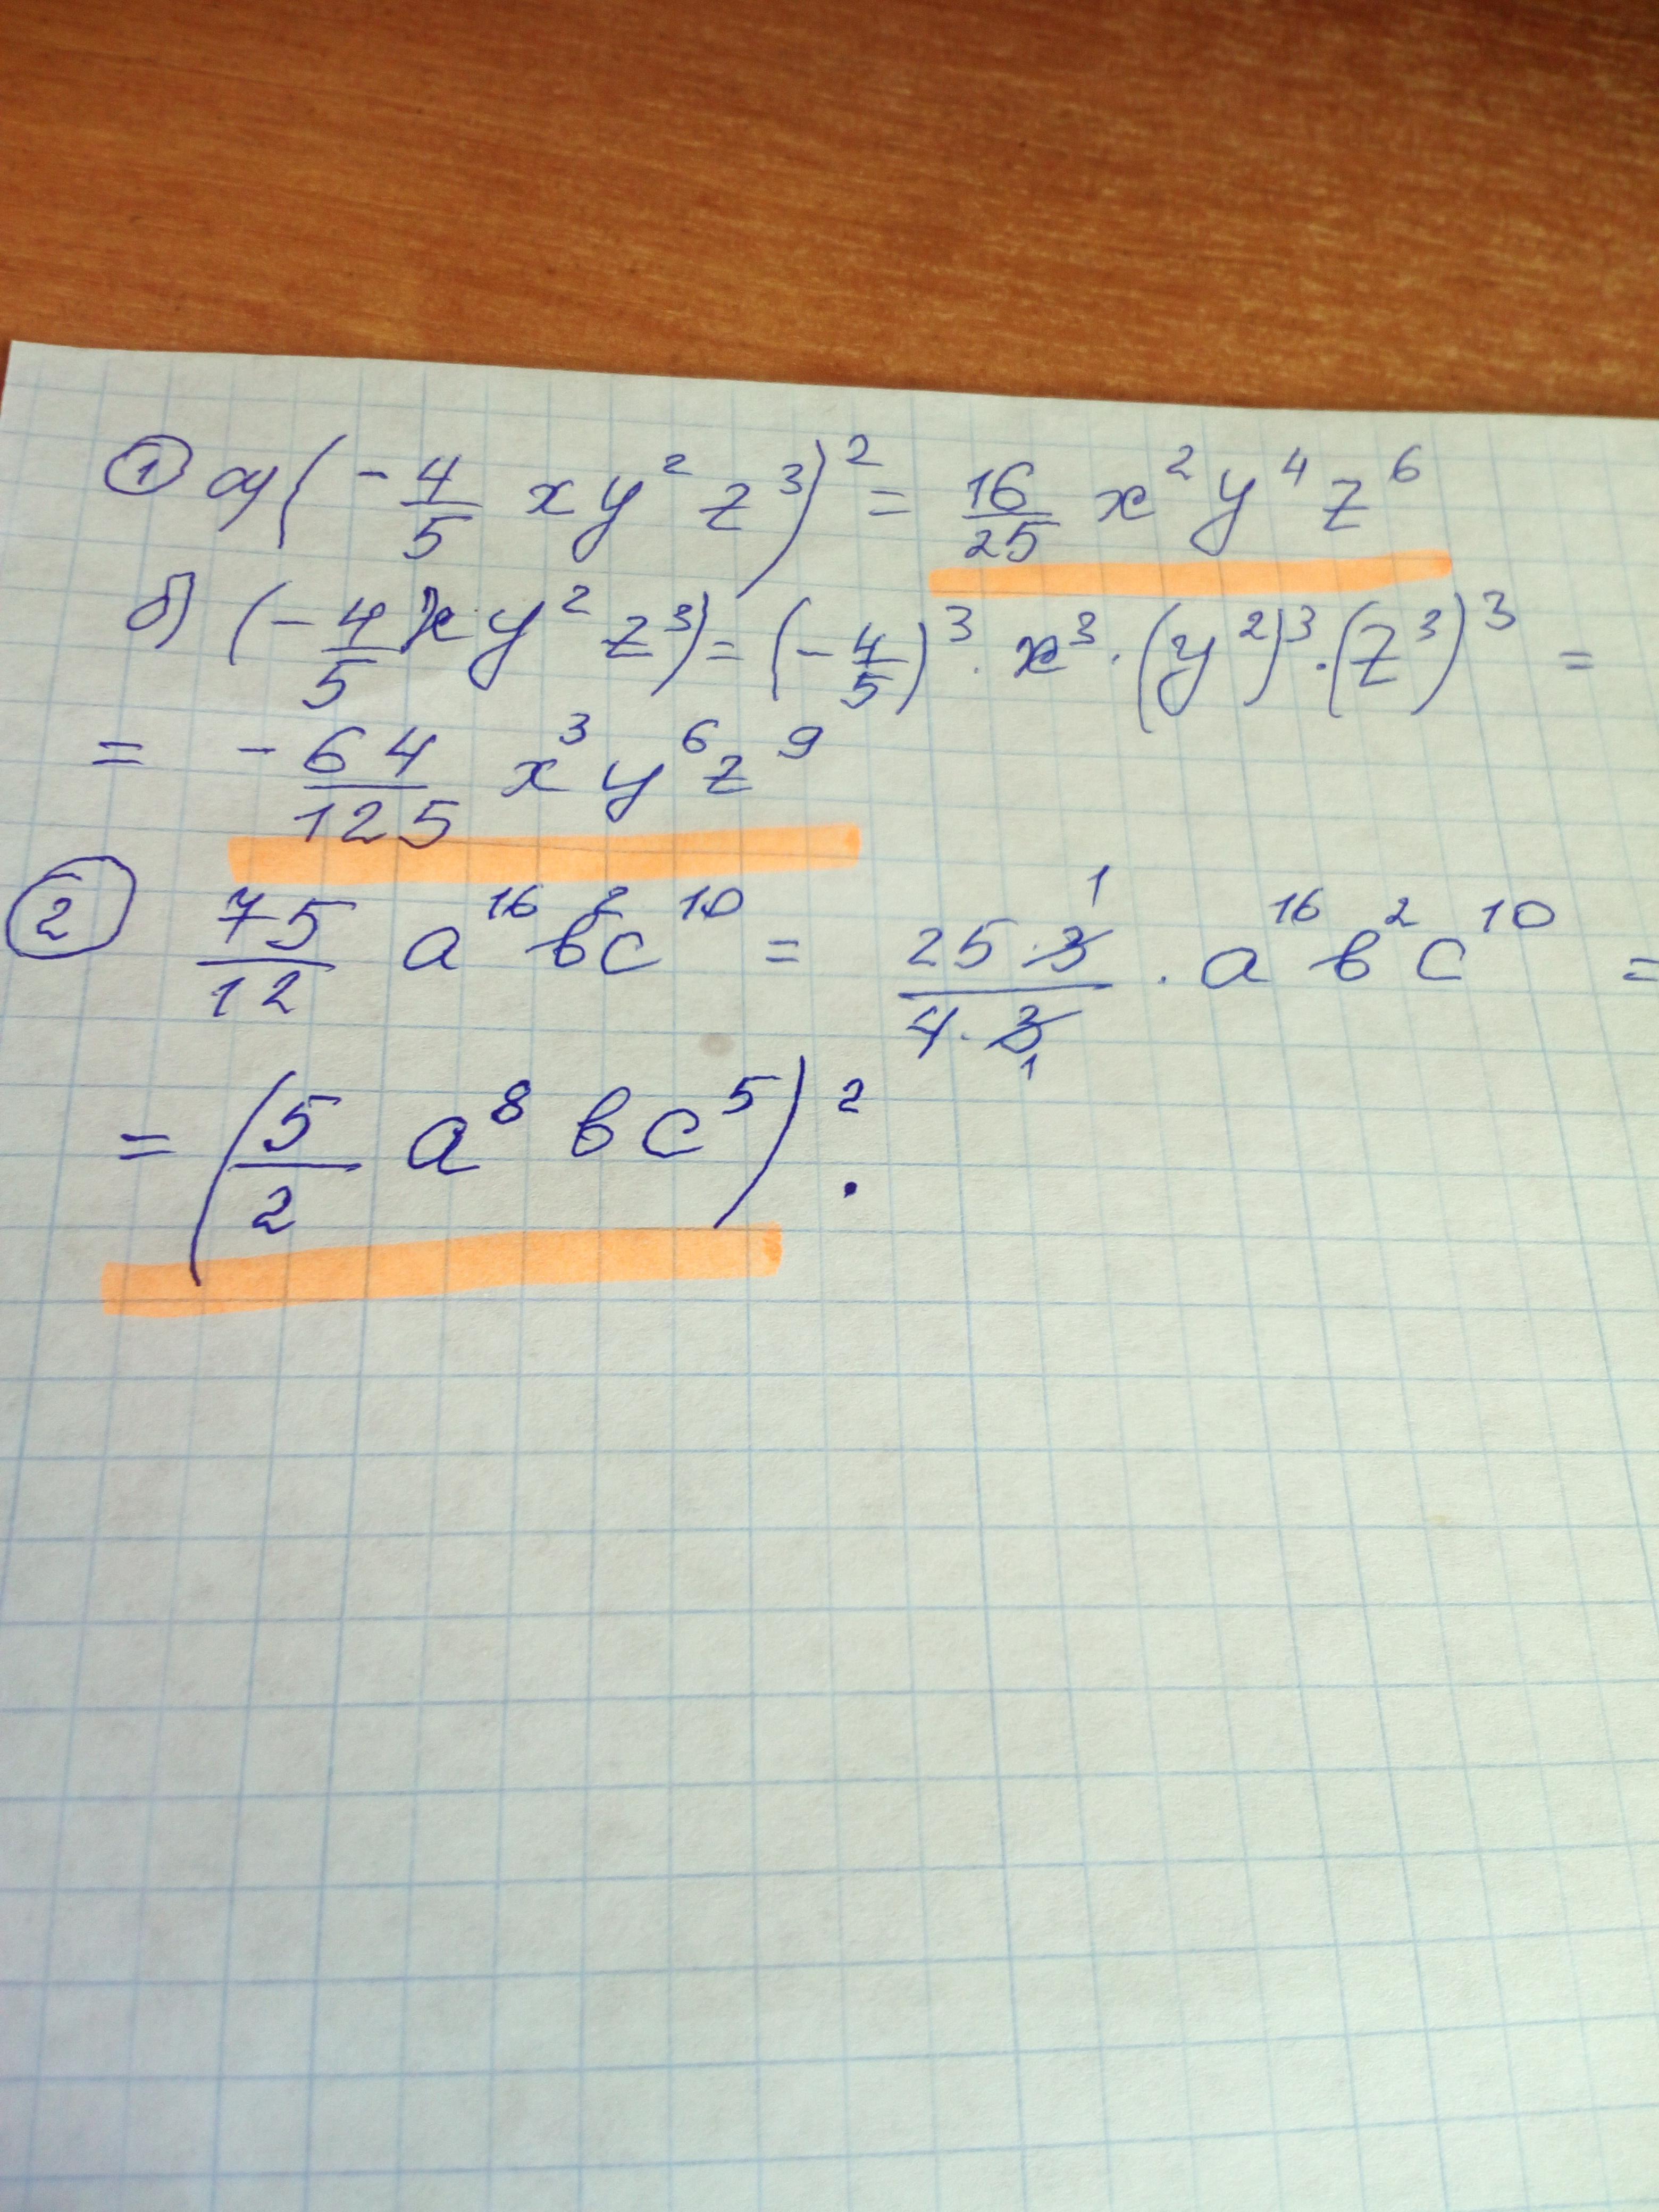 ① а) (-4/5 xy²z³)² = 16/25 x²y⁴z⁶
б) (-4/5 xy²z³) = (-4/5)³ · x³ · (y²)³ · (z³)³ =
= -64/125 x³y⁶z⁹
② 75/12 a¹⁶b²c¹⁰ = 25·3/4·3 · a¹⁶b²c¹⁰ =
= (5/2 a⁸bc⁵)².